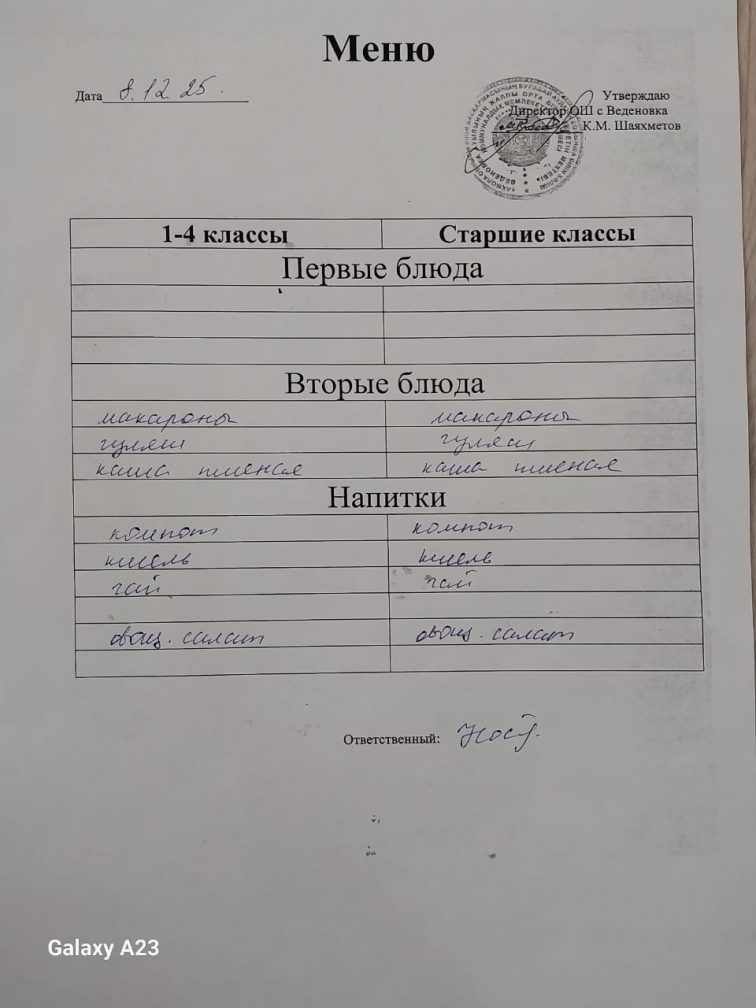 Меню
Дата 8.12.25.
Утверждаю
Директор ОШ с Веденовка
К.М. Шаяхметов
1-4 классы Старшие классы
Первые блюда
Вторые блюда
макароны макароны
гуляш гуляш
каша пшеная каша пшеная
Напитки
компот компот
кисель кисель
чай чай
овощ. салат овощ. салат
Ответственный:
Galaxy A23